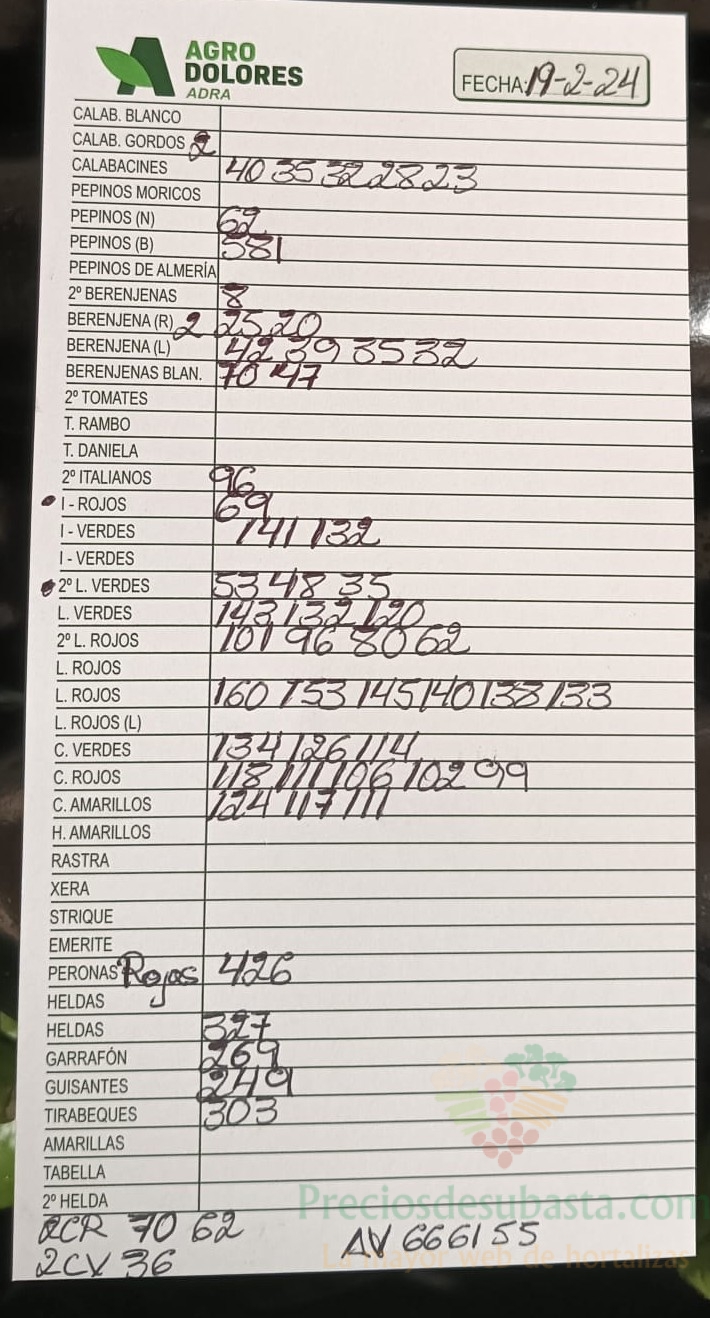 AGRO
DOLORES
ADRA
FECHA: 19-2-24
CALAB. BLANCO
CALAB. GORDOS 2
CALABACINES 40 35 32 28 23
PEPINOS MORICOS
PEPINOS (N) 62
PEPINOS (B) 581
PEPINOS DE ALMERÍA
2º BERENJENAS 8
BERENJENA (R) 2 25 20
BERENJENA (L) 42 39 35 32
BERENJENAS BLAN. 70 47
2º TOMATES
T. RAMBO
T. DANIELA
2º ITALIANOS 96
I - ROJOS 69
I - VERDES 141 132
I - VERDES
2º L. VERDES 53 48 35
L. VERDES 143 132 120
2º L. ROJOS 101 96 80 62
L. ROJOS
L. ROJOS 160 153 145 140 138 133
L. ROJOS (L)
C. VERDES 134 126 114
C. ROJOS 118 111 106 102 99
C. AMARILLOS 124 117 111
H. AMARILLOS
RASTRA
XERA
STRIQUE
EMERITE
PERONAS Rojas 426
HELDAS
HELDAS 327
GARRAFÓN 269
GUISANTES 249
TIRABEQUES 303
AMARILLAS
TABELLA
2º HELDA
Preciosdesubasta.com
2CR 70 62
AV 66 61 55
2CV 36
La mayor web de hortalizas